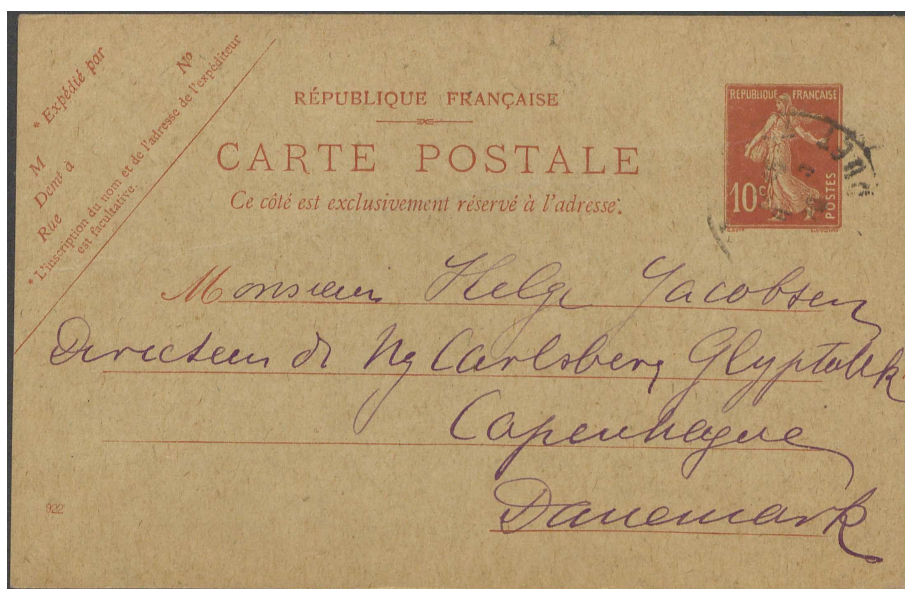 * Expédié par
M
Nº
Demt à
Rue
* L'inscription du nom et de l'adresse de l'expéditeur
est facultative.
RÉPUBLIQUE FRANÇAISE
CARTE POSTALE
Ce côté est exclusivement réservé à l'adresse.
RÉPUBLIQUE FRANÇAISE
10c
POSTES
Monsieur Helge Jacobsen
Directeur de Ny Carlsberg Glyptotek
Copenhague
Danemark
922